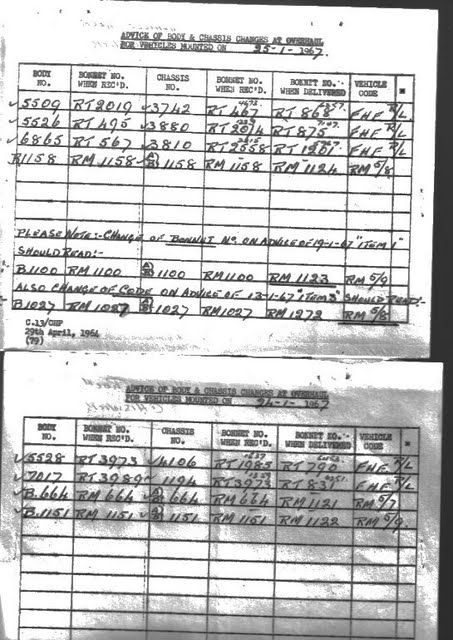 ADVICE OF BODY & CHASSIS CHANGES AT OVERHAUL
FOR VEHICLES MOUNTED ON 25-1-1967.
BODY NO. BONNET NO. WHEN REC'D. CHASSIS NO. BONNET NO. WHEN REC'D. BONNET NO. WHEN DELIVERED VEHICLE CODE *
✓5509 RT 2019 ✓3742 RT 467 RT 868 FHF R/L
✓5526 RT 495 ✓3880 RT 2014 RT 875 FHF R/L
✓6865 RT 567 ✓3810 RT 2558 RT 1201 FHF R/L
B1158 RM 1158 B 1158 RM 1158 RM 1124 RM 5/8
PLEASE NOTE:- CHANGE OF BONNET NO. ON ADVICE OF 19-1-67 "ITEM 1"
SHOULD READ:-
B1100 RM 1100 B 1100 RM1100 RM 1123 RM 5/9
ALSO CHANGE OF CODE ON ADVICE OF 13-1-67 "ITEM 3" SHOULD READ:-
B1027 RM 1027 B 1027 RM1027 RM 1272 RM 5/8
C.13/CHP
29th April, 1964
(79)
ADVICE OF BODY & CHASSIS CHANGES AT OVERHAUL
FOR VEHICLES MOUNTED ON 24-1-1967
BODY NO. BONNET NO. WHEN REC'D. CHASSIS NO. BONNET NO. WHEN REC'D. BONNET NO. WHEN DELIVERED VEHICLE CODE *
✓5528 RT 3973 ✓4106 RT 1985 RT 790 FHF R/L
✓7017 RT 3989 ✓1194 RT 3973 RT 837 FHF R/L
✓B.664 RM 664 B 664 RM 664 RM 1121 RM 5/7
✓B.1151 RM 1151 B 1151 RM 1151 RM 1122 RM 5/9